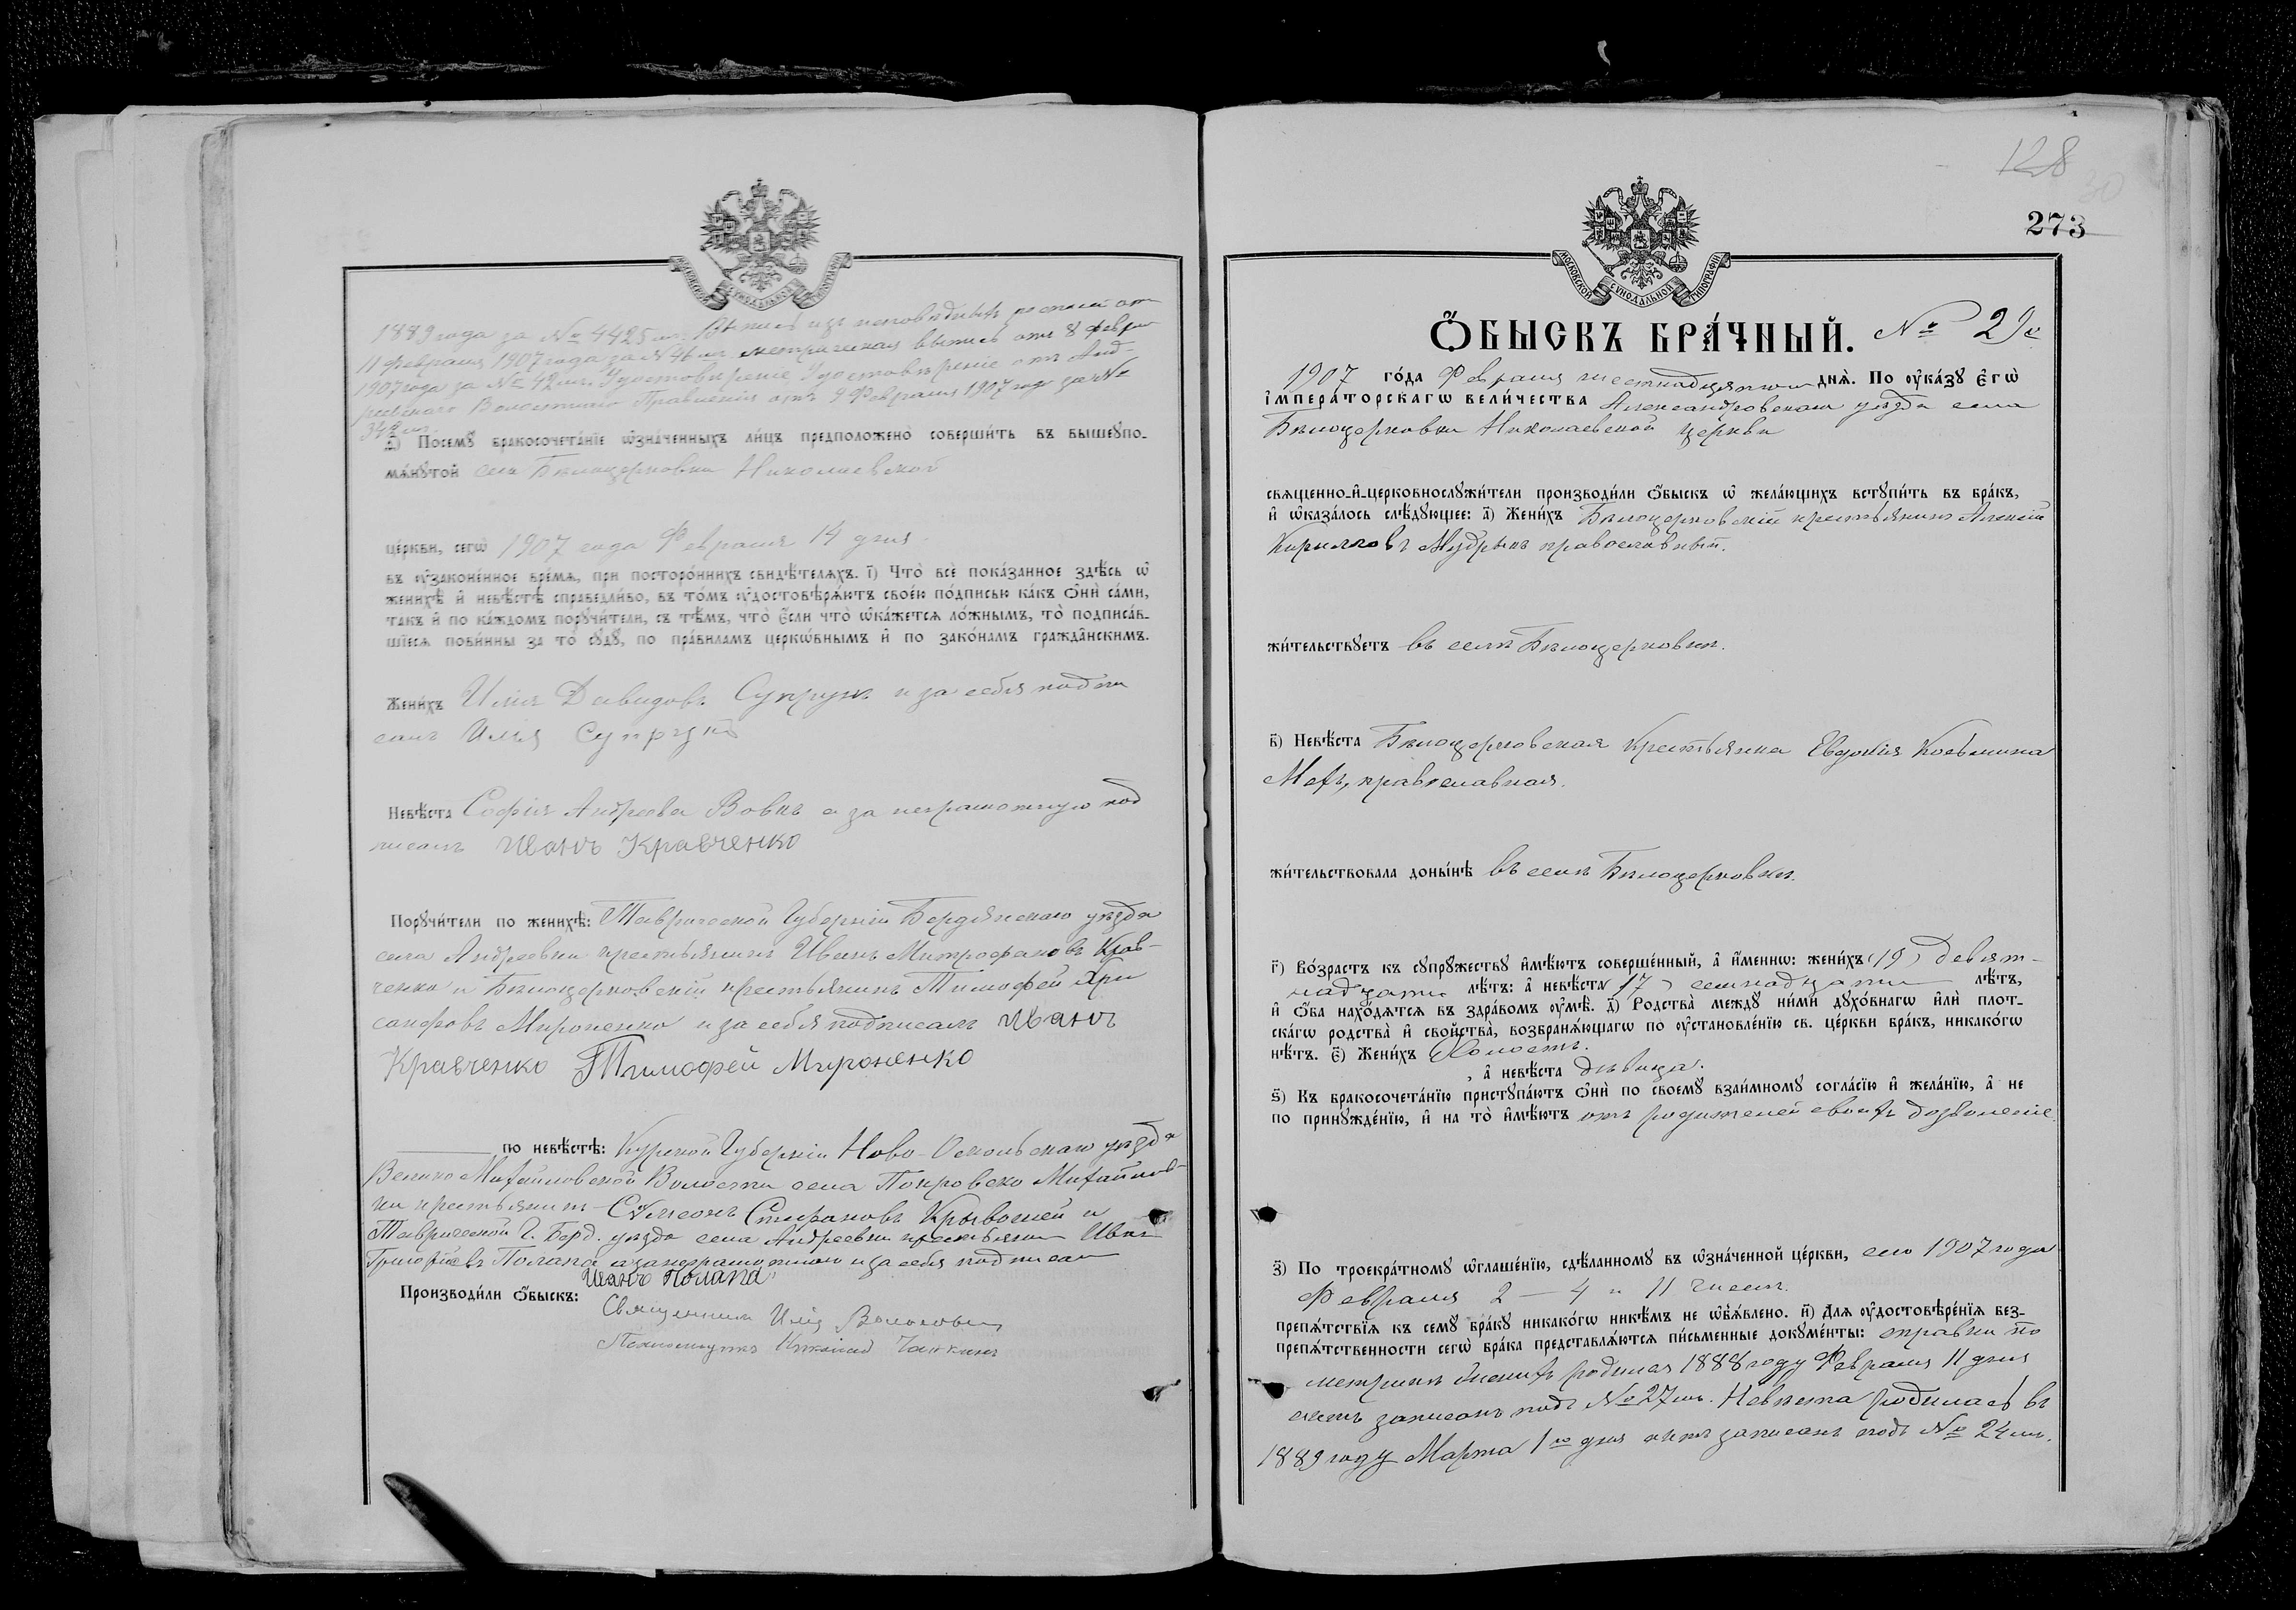 МОСКОВСКОЙ СѴНОДАЛЬНОЙ ТИПОГРАФІИ
1889 года за № 4425 Выпись изъ исповѣдныхъ росписей отъ
11 Февраля 1907 года за № 46 метрическая выпись отъ 8 Февра
1907 года за № 42 Удостовѣреніе Удостовѣреніе отъ Анд-
реевскаго Волостнаго Правленія отъ 9 Февраля 1907 года за №
348
ѳ҃) Посемꙋ̀ бракосочета́нїе ѡ҆зна́ченныхъ ли́цъ предположено̀ соверши́ть въ вышеꙋпо-
мѧ́нꙋтой села Бѣлоцерковки Николаевской
це́ркви, сегѡ̀ 1907 года Февраля 14 дня.
въ ᲂу҆зако́ненное вре́мѧ, при посторо́ннихъ свидѣ́телѧхъ. і҃) Что̀ всѐ пока́занное здѣ́сь ѡ҆
женихѣ̀ и҆ невѣ́стѣ справедли́во, въ то́мъ ᲂу҆достовѣрѧ́ютъ свое́ю по́дписью ка́къ ѻ҆нѝ са́ми,
та́къ и҆ по ка́ждомъ порꙋчи́тели, съ тѣ́мъ, что̀ є҆́сли что̀ ѡ҆ка́жетсѧ ло́жнымъ, то̀ подписа́в-
шїесѧ пови́нны за то̀ сꙋдꙋ̀, по пра́виламъ церкѡ́внымъ и҆ по зако́намъ гражда́нскимъ.
Жени́хъ Илія Давидовъ Супрунъ и за себя подпи
салъ Илья Супрунъ
Невѣ́ста Софія Андреева Вовкъ а за неграмотную под
писалъ Иванъ Кравченко
Порꙋчи́тели по женихѣ̀: Таврической Губерніи Бердянскаго уѣзда
села Андреевки крестьянинъ Иванъ Митрофановъ Крав-
ченко и Бѣлоцерковскій крестьянинъ Тимофей Хри
санфовъ Мироненко и за себя подписалъ Иванъ
Кравченко Тимофей Мироненко
по невѣ́стѣ: Курской Губерніи Ново-Оскольскаго уѣзда
Велико Михайловской Волости села Покровско Михайлов-
ки крестьянинъ Сѵмеонъ Стефановъ Крывошей и
Таврической Г. Берд. уѣзда села Андреевки крестьянин Иван
Григоріевъ Полапа а за неграмотнаго и за себя подписал
Иванъ Полапа
Производи́ли ѻ҆́быскъ:
Священникъ Илія
Псаломщикъ
128
30
273
МОСКОВСКОЙ СѴНОДАЛЬНОЙ ТИПОГРАФІИ
Ѻ҆́БЫСКЪ БРА́ЧНЫЙ. № 29й
1907 го́да Февраля шестнадцятого днѧ̀. По ᲂу҆ка́зꙋ є҆гѡ̀
і҆мпера́торскагѡ вели́чества Александровскаго уѣзда села
Бѣлоцерковки Николаевской церкви
свѧще́нно-и҆-церковнослꙋжи́тели производи́ли ѻ҆́быскъ ѡ҆ жела́ющихъ встꙋпи́ть въ бра́къ,
и҆ ѡ҆каза́лось слѣ́дꙋющее: а҃) Жени́хъ Бѣлоцерковскій крестьянинъ Алексій
Кирилловъ Мудрыкъ православный.
жи́тельствꙋетъ въ селѣ Бѣлоцерковкѣ.
в҃) Невѣ́ста Бѣлоцерковская Крестьянка Евдокія Косьмина
Мехъ, православная.
жи́тельствовала доны́нѣ въ селѣ Бѣлоцерковкѣ.
г҃) Во́зрастъ къ сꙋпрꙋ́жествꙋ и҆мѣ́ютъ соверше́нный, а҆ и҆́меннѡ: жени́хъ (19) девят-
надцати лѣ́тъ: а҆ невѣ́ста 17, семнадцати лѣ́тъ,
и҆ ѻ҆́ба нахо́дѧтсѧ въ здра́вомъ ᲂу҆мѣ̀. д҃) Родства̀ междꙋ̀ ни́ми дꙋхо́внагѡ и҆лѝ пло́т-
скагѡ родства̀ и҆ свойства̀, возбранѧ́ющагѡ по ᲂу҆становле́нїю св. це́ркви бра́къ, никако́гѡ
нѣ́тъ. є҃) Жени́хъ Холостъ.
, а҆ невѣ́ста дѣвица.
ѕ҃) Къ бракосочета́нїю пристꙋпа́ютъ ѻ҆нѝ по своемꙋ̀ взаи́мномꙋ согла́сїю и҆ жела́нїю, а҆ не
по принꙋжде́нїю, и҆ на то̀ и҆мѣ́ютъ отъ родителей своихъ дозволеніе
з҃) По троекра́тномꙋ ѡ҆глаше́нїю, сдѣ́ланномꙋ въ ѡ҆зна́ченной це́ркви, сего 1907 года
Февраля 2 — 4 и 11 чиселъ.
препѧ́тствїѧ къ семꙋ̀ бра́кꙋ никако́гѡ никѣ́мъ не ѡ҆б̾ѧ́влено. и҃) Длѧ ᲂу҆достовѣре́нїѧ без-
препѧ́тственности сегѡ̀ бра́ка представлѧ́ютсѧ пи́сьменные докꙋме́нты: справки по
метрикѣ Женихъ родился 1888 году Февраля 11 дня
актъ записанъ подъ № 27мъ. Невѣста родилась въ
1889 году Марта 1го дня актъ записанъ подъ № 24мъ.